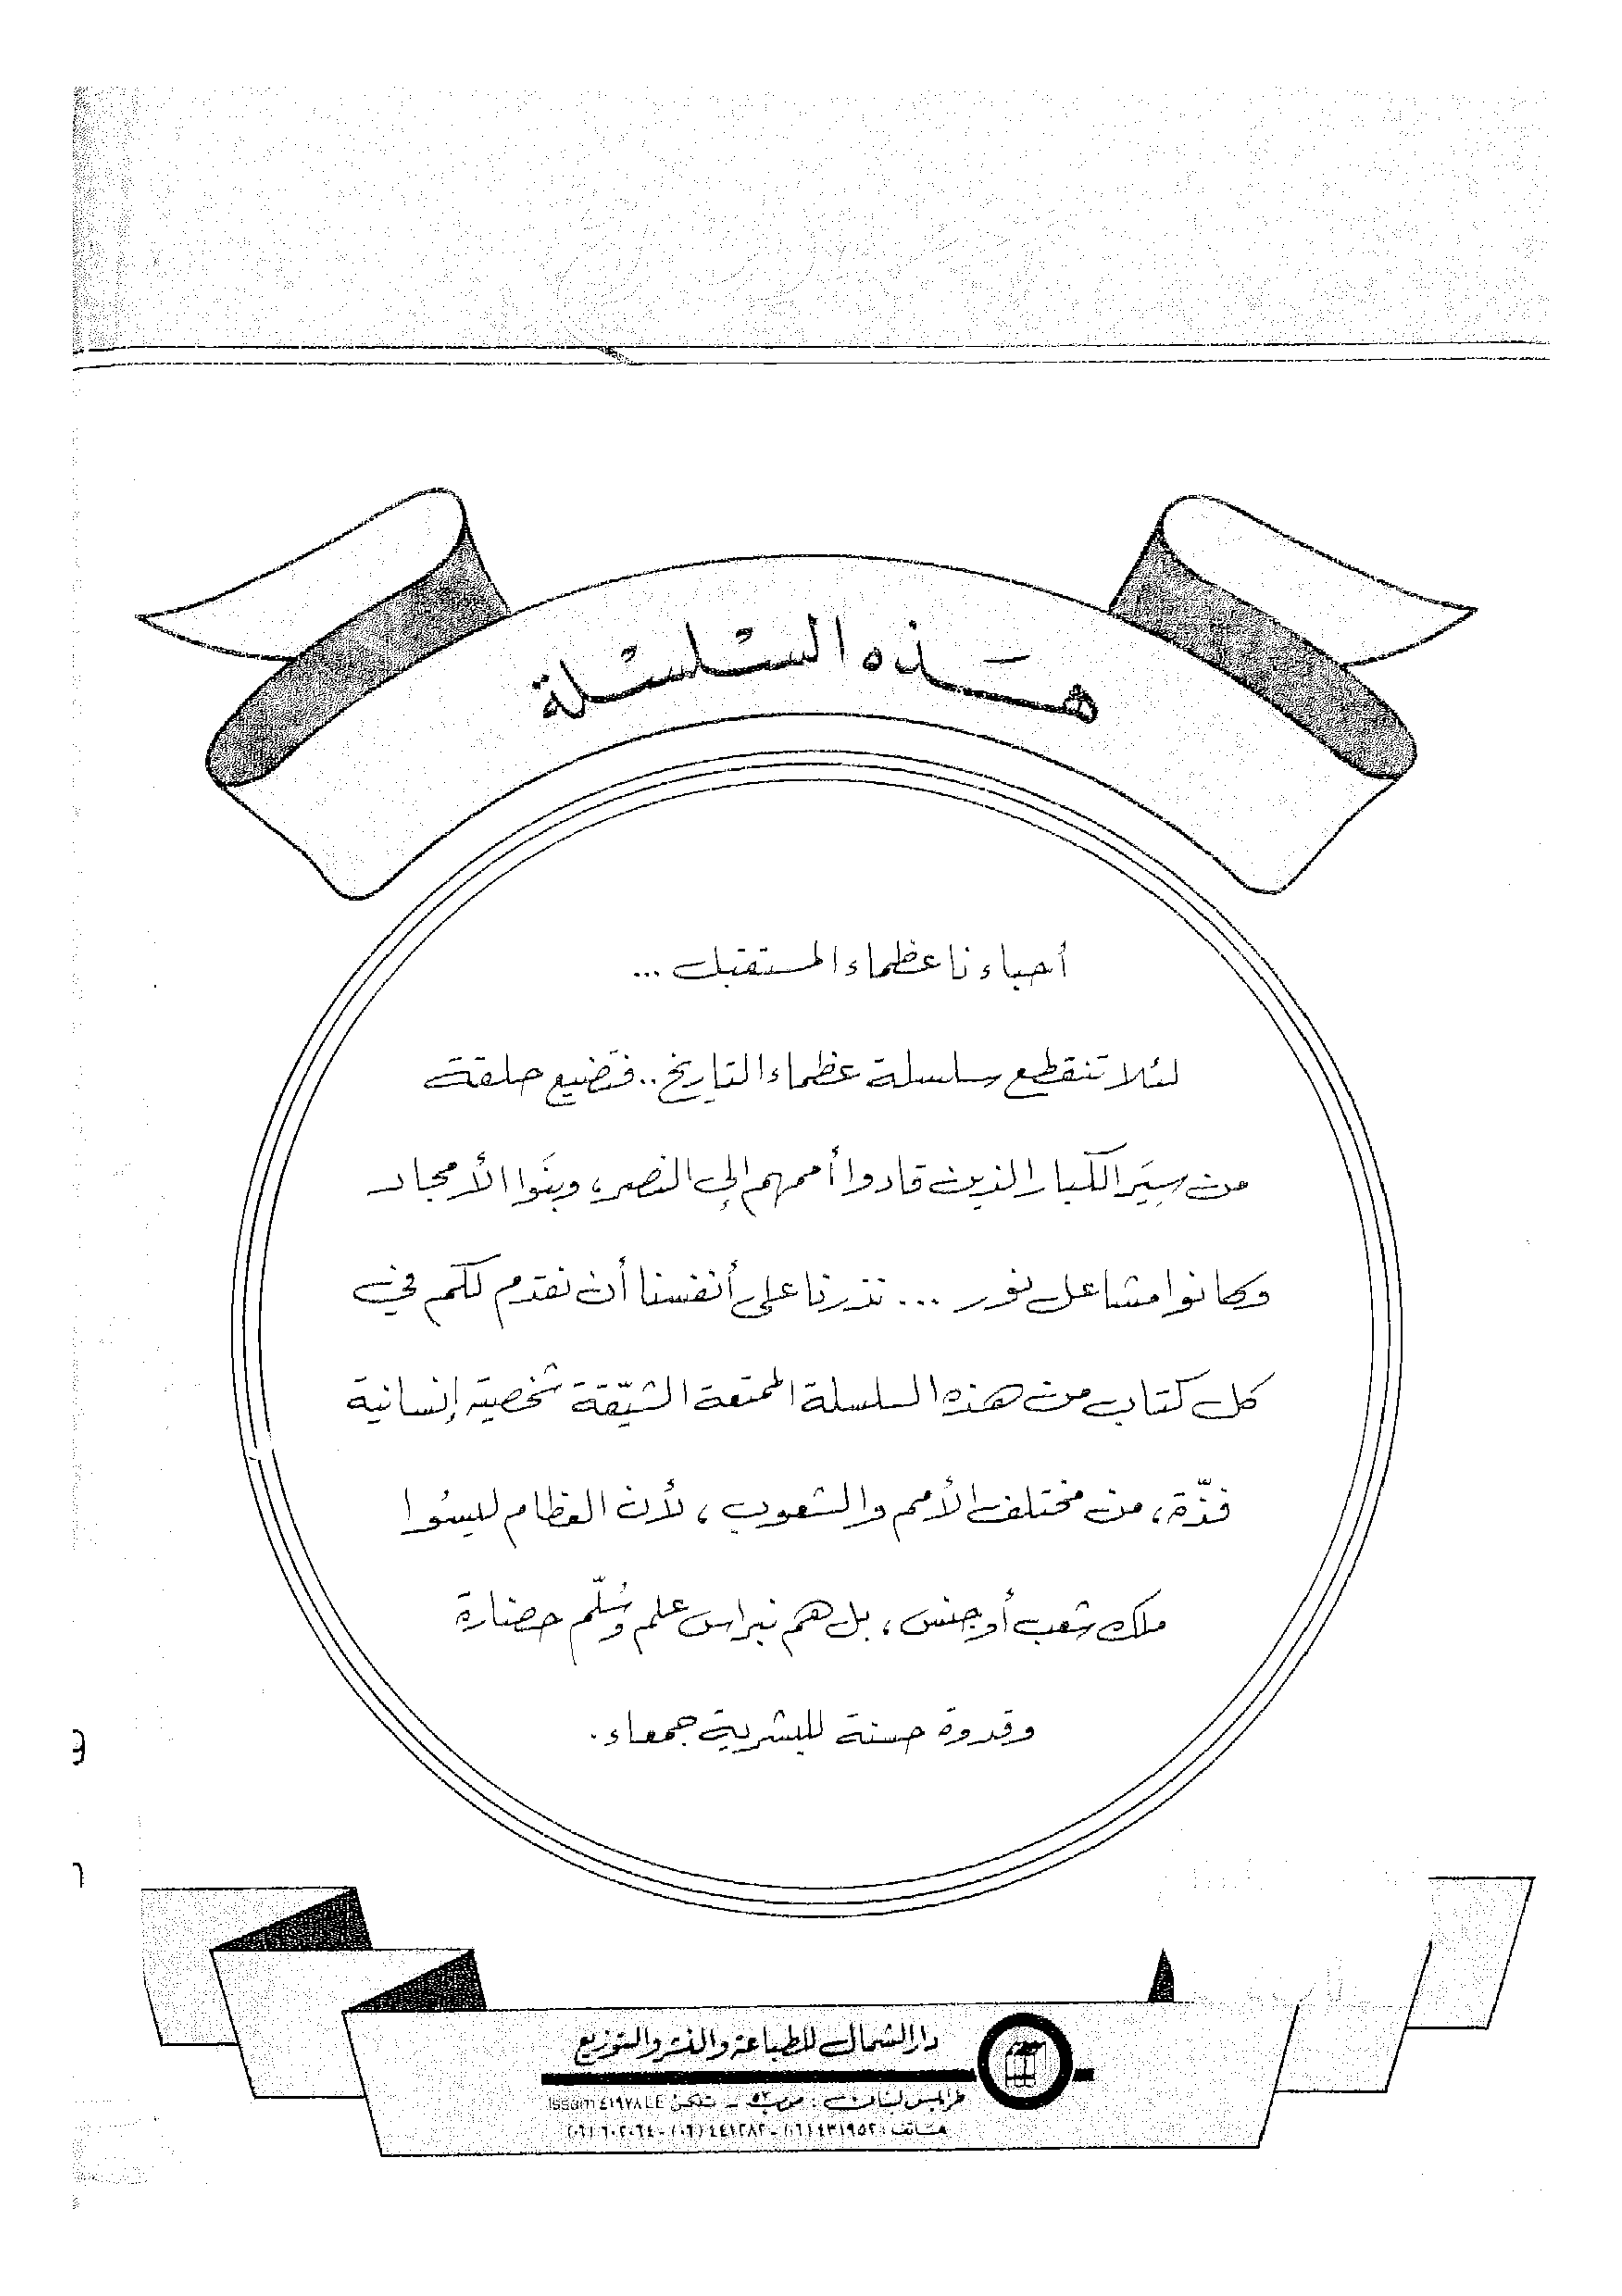 هَذه السّلسْلة
أحباءنا عظماء المستقبل ...
لئلا تنقطع سلسلة عظماء التاريخ .. فتضيع حلقة
من سِيَر الكبار الذين قادوا أممهم إلى النصر، وبنَوا الأمجاد
وكانوا مشاعل نور ... نذرنا على أنفسنا أن نقدم لكم في
كل كتاب من هذه السلسلة الممتعة الشيّقة شخصية إنسانية
فذّة، من مختلف الأمم والشعوب، لأن العظام ليسُوا
ملك شعب أو جنس، بل هم نبراس علم وسُلّم حضارة
وقدوة حسنة للبشرية جمعاء.
دار الشمال للطباعة والنشر والتوزيع
طرابلس لبنان : ص.ب ٥٢ - تلكس Issam ٤١٩٧٨ LE
هاتف